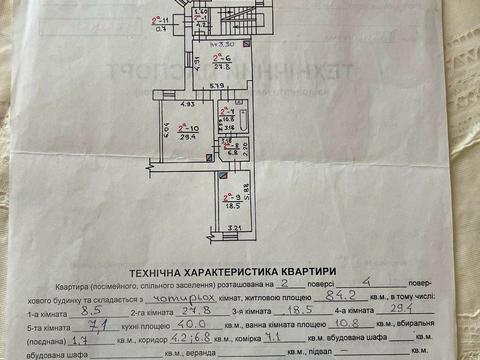 1.60
2ᵃ-1
4.2
2ᵃ-11
0.7
h=3.90
2ᵃ-6
27.8
4.91
5.79
4.93
2ᵃ-7
10.8
3.18
6.04
2ᵃ-10
29.4
3.18
2ᵃ-8
6.8
2.20
2ᵃ-9
18.5
5.88
3.21
ТЕХНІЧНА ХАРАКТЕРИСТИКА КВАРТИРИ
Квартира (посімейного, спільного заселення) розташована на 2 поверсі 4 повер-
хового будинку та складається з чотирьох кімнат, житловою площею 84.2 кв.м., в тому числі:
1-а кімната 8.5 2-га кімната 27.8 3-я кімната 18.5 4-а кімната 29.4
5-та кімната 7.1 кухні площею 40.0 кв.м., ванна кімната площею 10.8 кв.м., вбиральня
(поєднана) 1.7 кв.м., коридор 4.2; 6.8 кв.м., комірка 4.1 кв.м., вбудована шафа кв.м.,
вбудована шафа кв.м., веранда кв.м., підвал – кв.м.